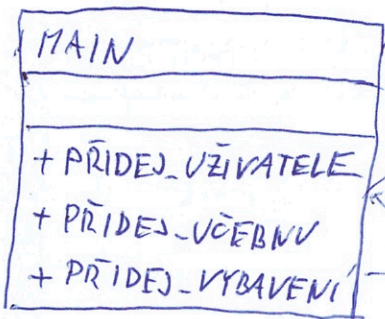 MAIN
+ PŘIDEJ_UŽIVATELE
+ PŘIDEJ_UČEBNU
+ PŘIDEJ_VYBAVENÍ